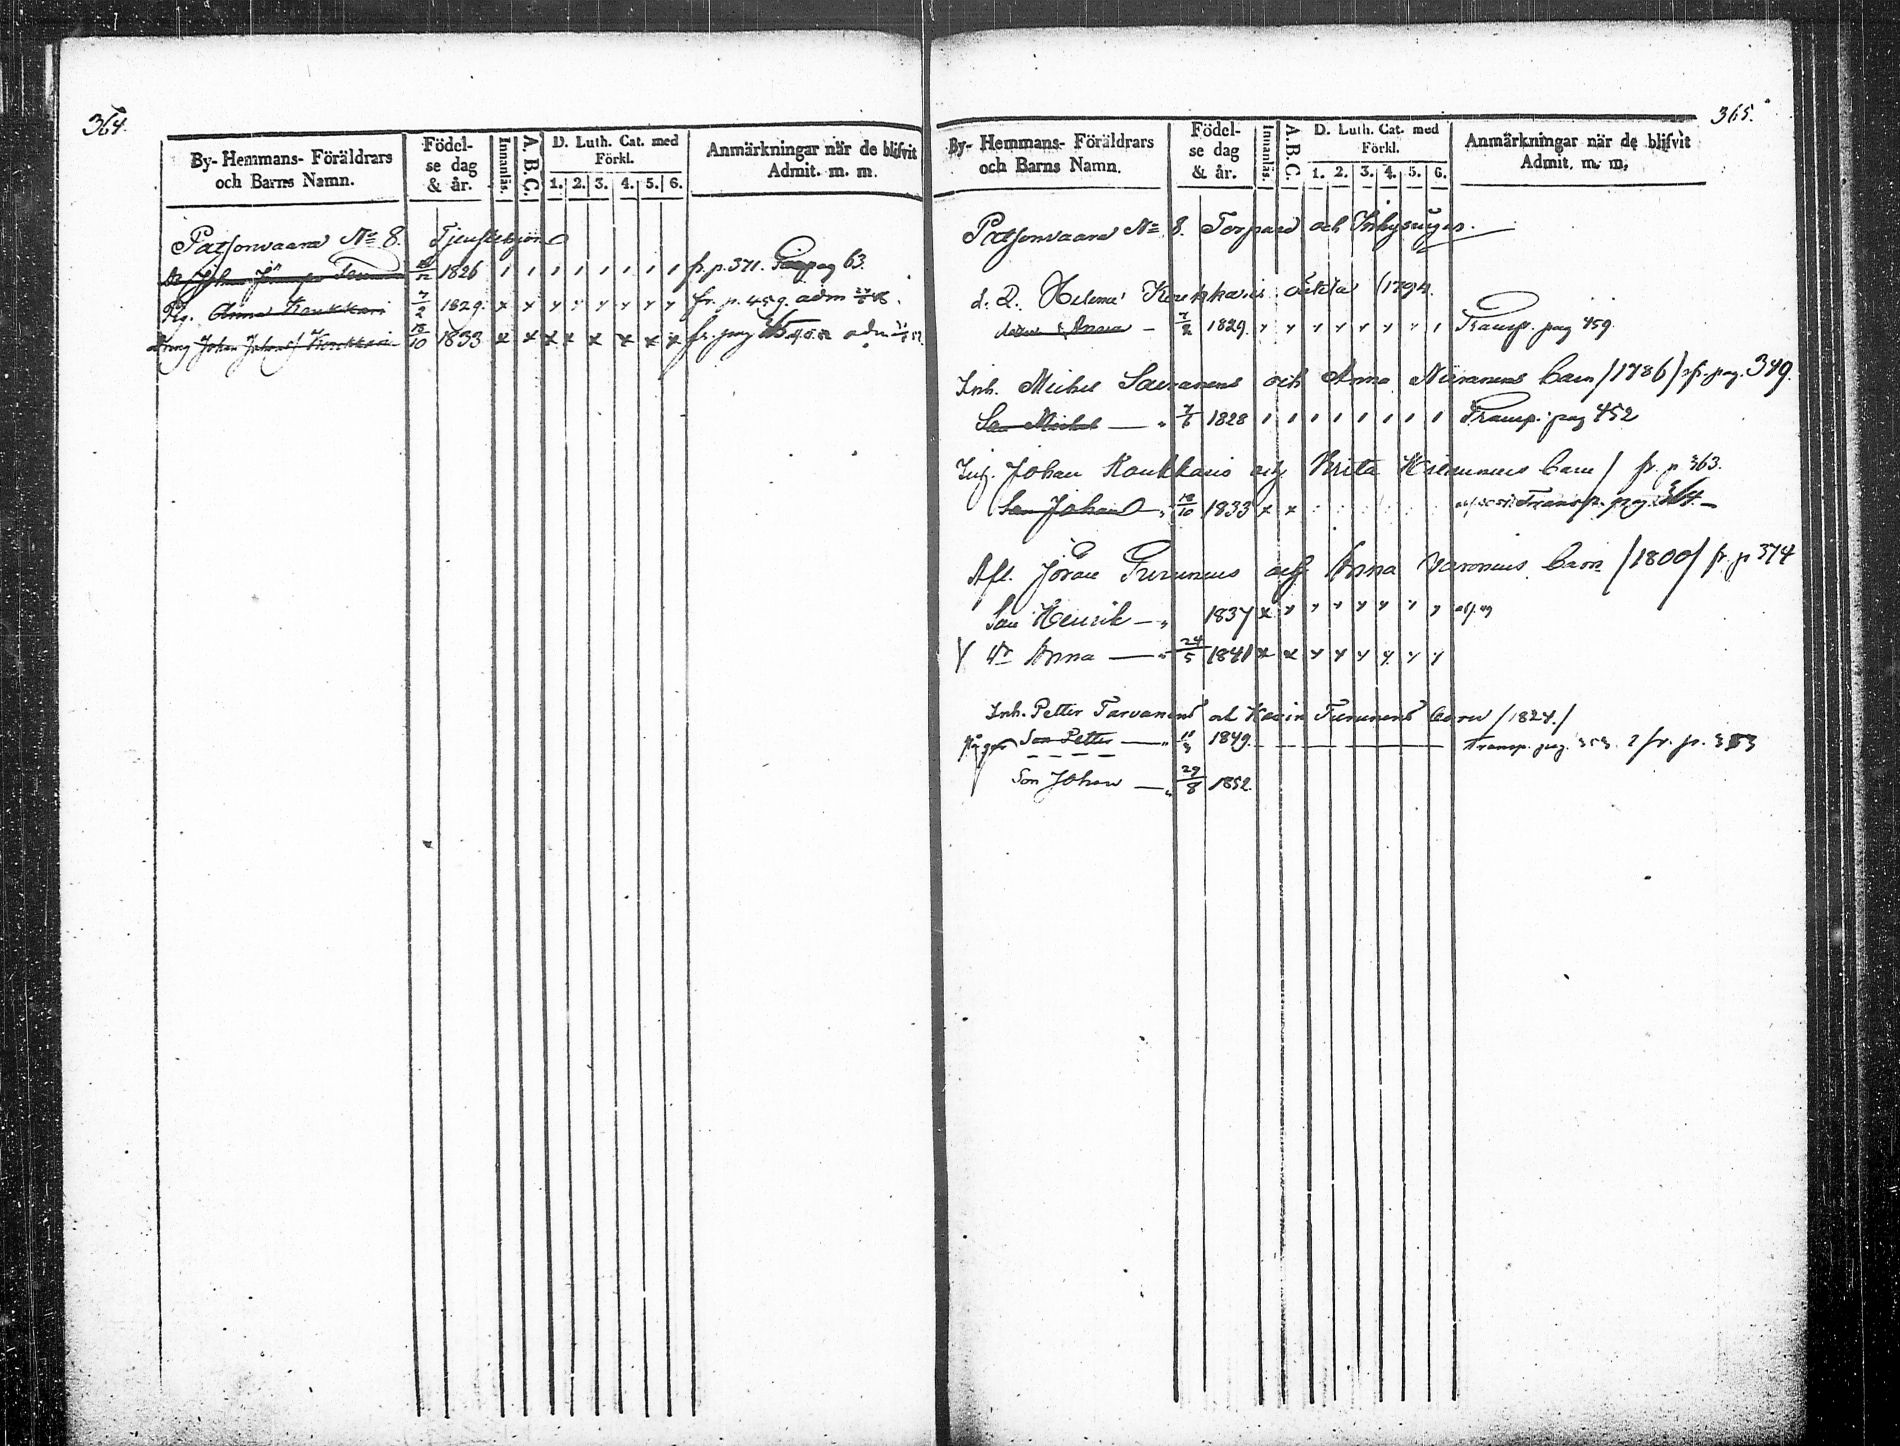 364.
By- Hemmans- Föräldrars och Barns Namn.
Födelse dag & år.
Innanläs.
A.B.C.
D. Luth. Cat. med Förkl.
1. 2. 3. 4. 5. 6.
Anmärkningar när de blifvit Admit. m. m.
Patsonvaara No 8. Tjenstehjon
Dr Johan 18/12 1826 fr. p. 371. pag 63.
Pig. Anna Koukkari 7/2 1829. x x fr. p. 459. adm
Dreng Johan Johans Koukkari 18/10 1833 x x x x x x x x fr. pag adm
365.
By- Hemmans- Föräldrars och Barns Namn.
Födelse dag & år.
Innanläs.
A.B.C.
D. Luth. Cat. med Förkl.
1. 2. 3. 4. 5. 6.
Anmärkningar när de blifvit Admit. m. m.
Patsonvaara No 8. Torpare och Inhysinges.
Helena Koukkaris oäkta /1794.
Anna — 7/2 1829. Transp. pag 459
Inh. Michel och Anna barn /1786/ fr. pag. 349.
Son Michel — 1828 Transp. pag 452
Inh. Johan Koukkaris och Brita barn / fr. p 363.
Son Johan — 18/10 1833 x x Transp. pag. 364. —
Afl. Jöran Turunens och Anna barn /1800/ fr. p 374
Son Henrik — 1837 x
Dr Anna — 24/5 1841 x x
Inh. Petter Tarvanens och Karin Turunens barn /1824./
Son Petter — 1849. Transp. pag. 353. fr. p. 353
Son Johan — 29/8 1852.